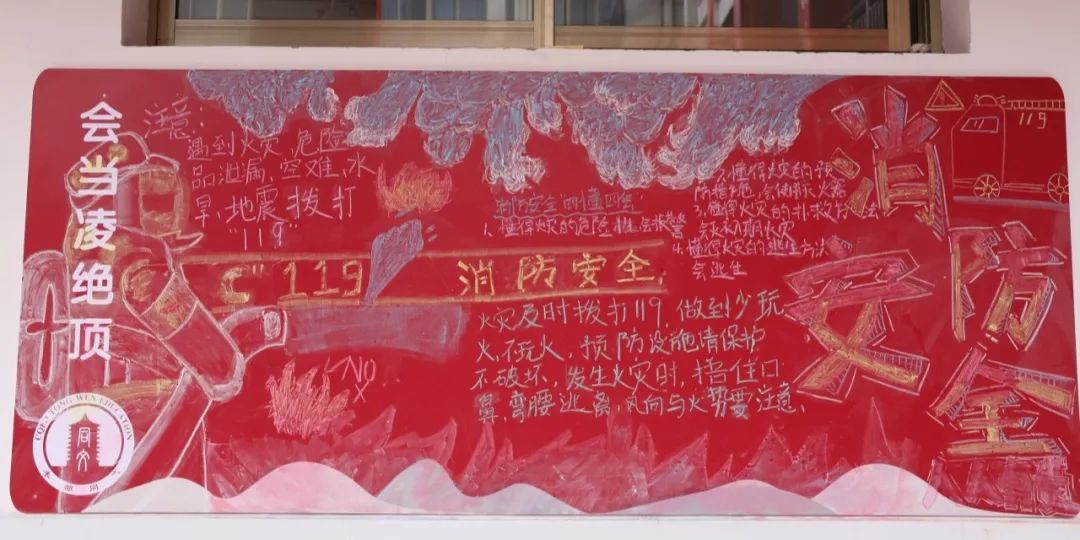 会当凌绝顶
注意:
遇到火灾、危险
品泄漏,空难、水
旱、地震拨打
"119"
119
消防安全
消防安全四懂四会
1.懂得火灾的危险性会报警
2.懂得火灾的预
防措施,会使用灭火器
3.懂得火灾的扑救方法
会扑救初期火灾
4.懂得火灾的逃生方法
会逃生
火灾及时拨打119,做到少玩
火,不玩火,预防设施请保护
不破坏,发生火灾时,捂住口
鼻,弯腰逃离,风向与火势要注意、
NO
消
防
安
全
119
TONG WEN EDUCATION
同文